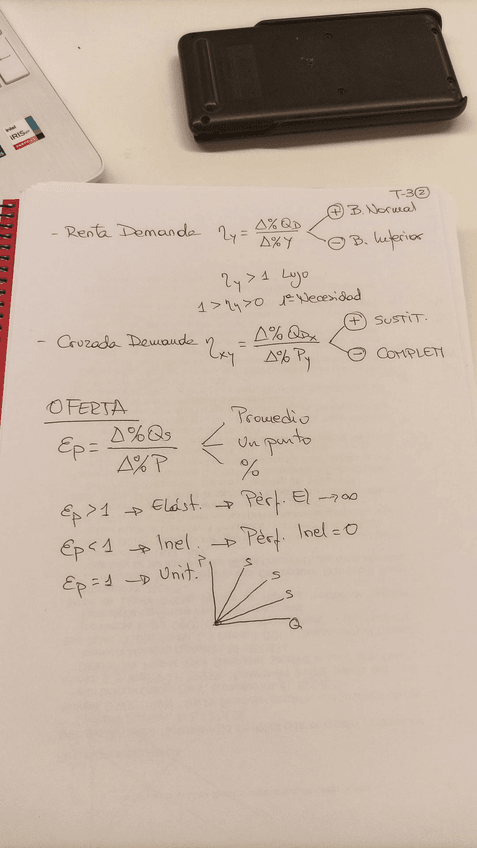 intel
iRIS xe
T-3②
- Renta Demanda η_y = Δ%Q_D / Δ%Y
⊕ B. Normal
⊖ B. Inferior
η_y > 1 Lujo
1 > η_y > 0 1ª Necesidad
- Cruzada Demanda η_xy = Δ%Q_Dx / Δ%P_y
⊕ SUSTIT.
⊖ COMPLEM
OFERTA
Ep = Δ%Qs / Δ%P
Promedio
Un punto
%
Ep > 1 → Elást. → Pérf. El → ∞
Ep < 1 → Inel. → Pérf. Inel = 0
Ep = 1 → Unit.
P
S
S
S
Q